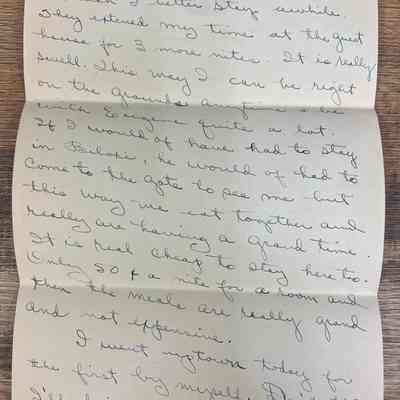 I better stay awhile.
They extened my time at the guest
house for 3 more nites. It is really
swell. This way I can be right
on the grounds anytime & be
with Eugene quite a bit.
If I would of have had to stay
in Biloxi, he would of had to
come to the gate to see me but
this way we eat together and
really are having a grand time.
It is real cheap to stay here too.
Only 50¢ a nite for a room and
then the meals are really grand
and not expensive.
I went uptown today for
the first by myself.
I'll